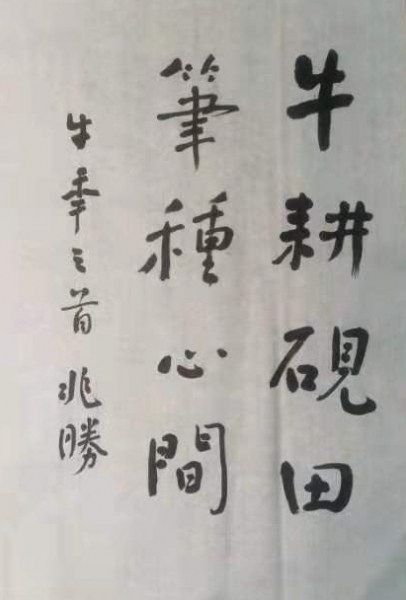 牛耕硯田
筆種心間
牛年之首 兆勝